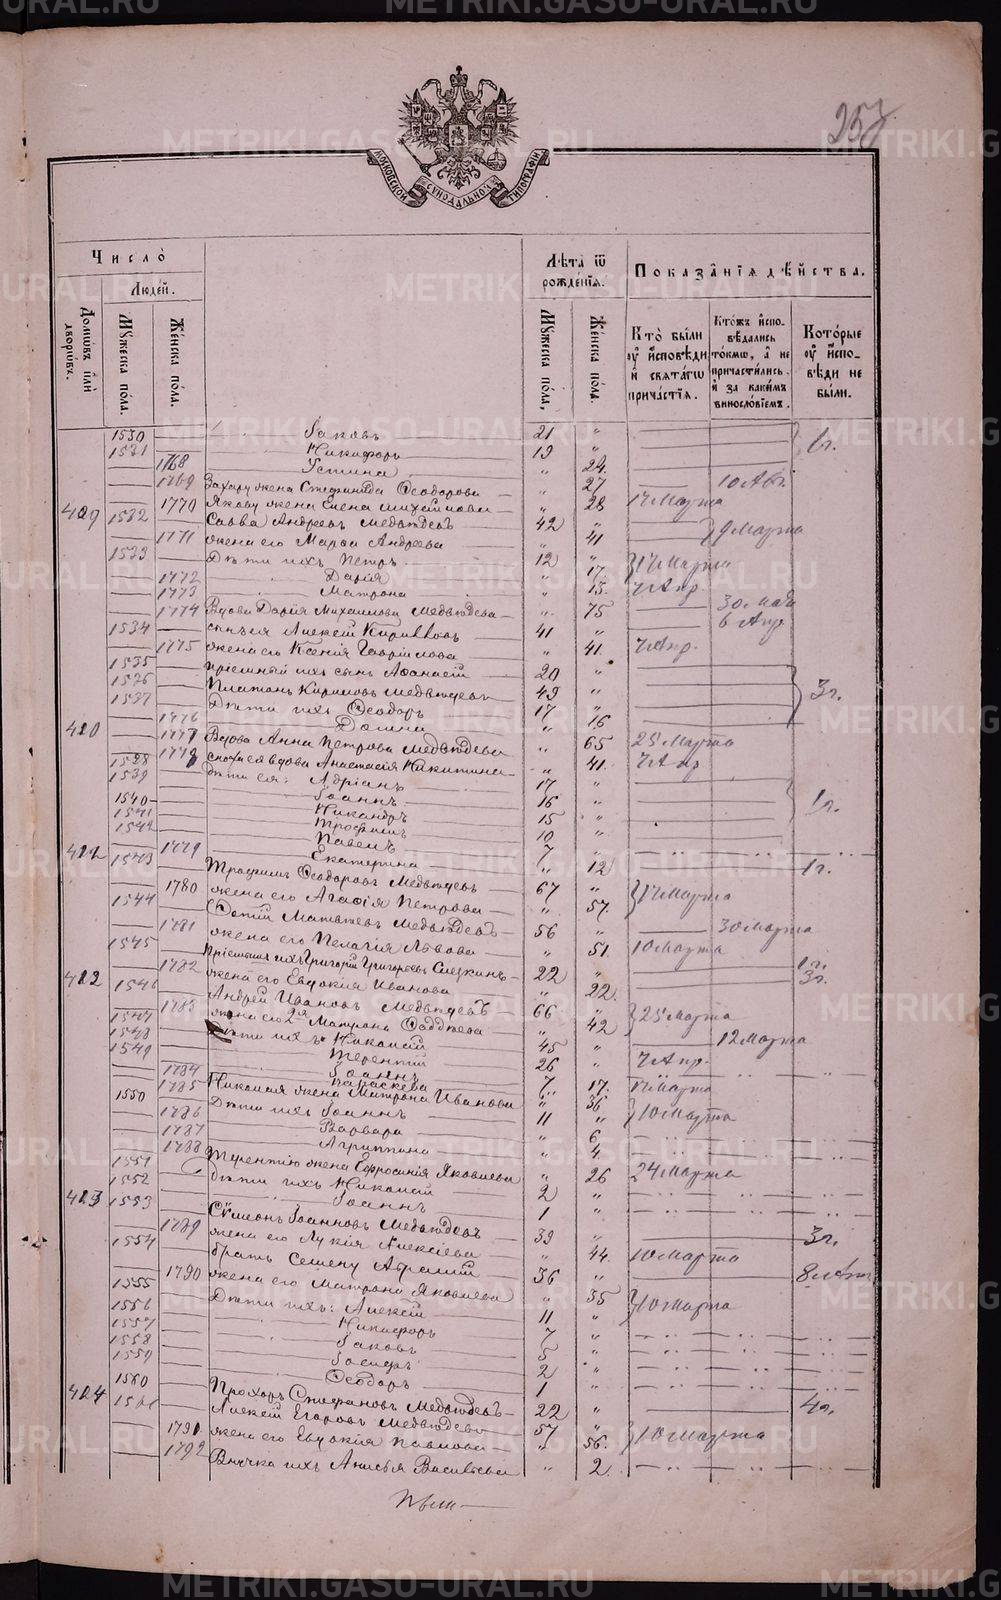 257
МОСКОВСКОЙ СѴНОДАЛЬНОЙ ТИПОГРАФІИ
Число̀
Людей.
Домѡвъ и҆лѝ дворѡ́въ.
Мꙋжеска пола.
Же́нска по́ла.
Лѣ́та ѿ рожде́нїѧ.
Мꙋжеска по́ла,
Же́нска пола.
Показа́нїѧ дѣ́йства.
Кто̀ бы́ли ᲂу҆ и҆сповѣди и҆ свѧта́гѡ прича́стїѧ.
Кто́жъ и҆спо-вѣдались то́кмѡ, а҆ не причасти́лись. и҆ за каки́мъ винословїемъ.
Кото́рые ᲂу҆ и҆спо-вѣди не бы́ли.
1530 Іаковъ 21 "
1531 Никифоръ 19 " 1г.
1768 Устина " 24.
1769 Захару жена Стефанида Ѳеодорова " 27
1770 Якову жена Елена Михайлова " 28 17 Марта
409 1532 Савва Андреевъ Медведевъ 42 "
1771 жена его Марѳа Андреева " 41 9 Марта
1533 Дѣти ихъ Петръ 12 " 17 Марта
1772 Дарія " 17
1773 Матрона " 13. 7 Апр.
1774 Вдова Дарія Михаилова Медведева " 75
1534 сынъ ея Алексѣй Кирилловъ 41 " 6 Апр
1775 жена его Ксенія Гавріилова " 41 7 Апр.
1535 пріемный ихъ сынъ Аѳанасій 20 "
1536 Платонъ Кириловъ Медведевъ 49 " 3г.
1537 Дѣти ихъ Ѳеодоръ 17 "
1776 Домна " 16
410 1777 Вдова Анна Петрова Медведева " 65 25 Марта
1778 сноха ея вдова Анастасія Никитина " 41. 7 Апр
1538 дѣти ея: Адріанъ 17 "
1539 Іоаннъ 16 "
1540 Никандръ 15 " 1г.
1541 Трофимъ 10 "
1542 Павелъ 7 "
1779 Екатерина " 12 1г.
411 1543 Трофимъ Ѳеодоровъ Медведевъ 67 "
1780 жена его Агафія Петрова " 57. 17 Марта
1544 Фотій Матвѣевъ Медведевъ 56 " 30 Марта
1781 жена его Пелагія Львова " 51 10 Марта
1545 Пріемышъ ихъ Григорій Григорьевъ 22 " 1г.
1782 жена его Евдокія Иванова " 22. 3г.
412 1546 Андрей Ивановъ Медведевъ 66 "
1783 жена его 2я Матрона " 42 25 Марта
1547 Дѣти ихъ Николай 45 " 12 Марта
1548 Терентій 26 " 7 Апр.
1549 Іоаннъ 7 "
1784 Параскева " 17. 17 Марта
1785 Николая жена Матрона Иванова " 36
1550 Дѣти ихъ Іоаннъ 11 " 10 Марта
1786 Варвара " 6
1787 Агриппина " 4.
1788 Терентію жена Ефросинія Яковлева " 26 24 Марта
1551 Дѣти ихъ Николай 2 "
1552 Іоаннъ 1 "
413 1553 Сѷмеонъ Іоанновъ Медведевъ 39 " 3г.
1789 жена его Лукія Алексіева " 44. 10 Марта
1554 братъ Семену 36 "
1790 жена его Матрона Яковлева " 35 10 Марта
1555 Дѣти ихъ: Алексій 11 "
1556 Никифоръ 7 "
1557 Іаковъ 5 "
1558 Іосифъ 2 "
1559 Ѳеодоръ 1 "
414 1560 Прохоръ Стефановъ Медведевъ 22 " 4г.
1561 Алексій Егоровъ Медведевъ 57 "
1791 жена его Евдокія Павлова " 56. 10 Марта
1792 Внучка ихъ Анисья Васильева " 2.
METRIKI.GASO-URAL.RU